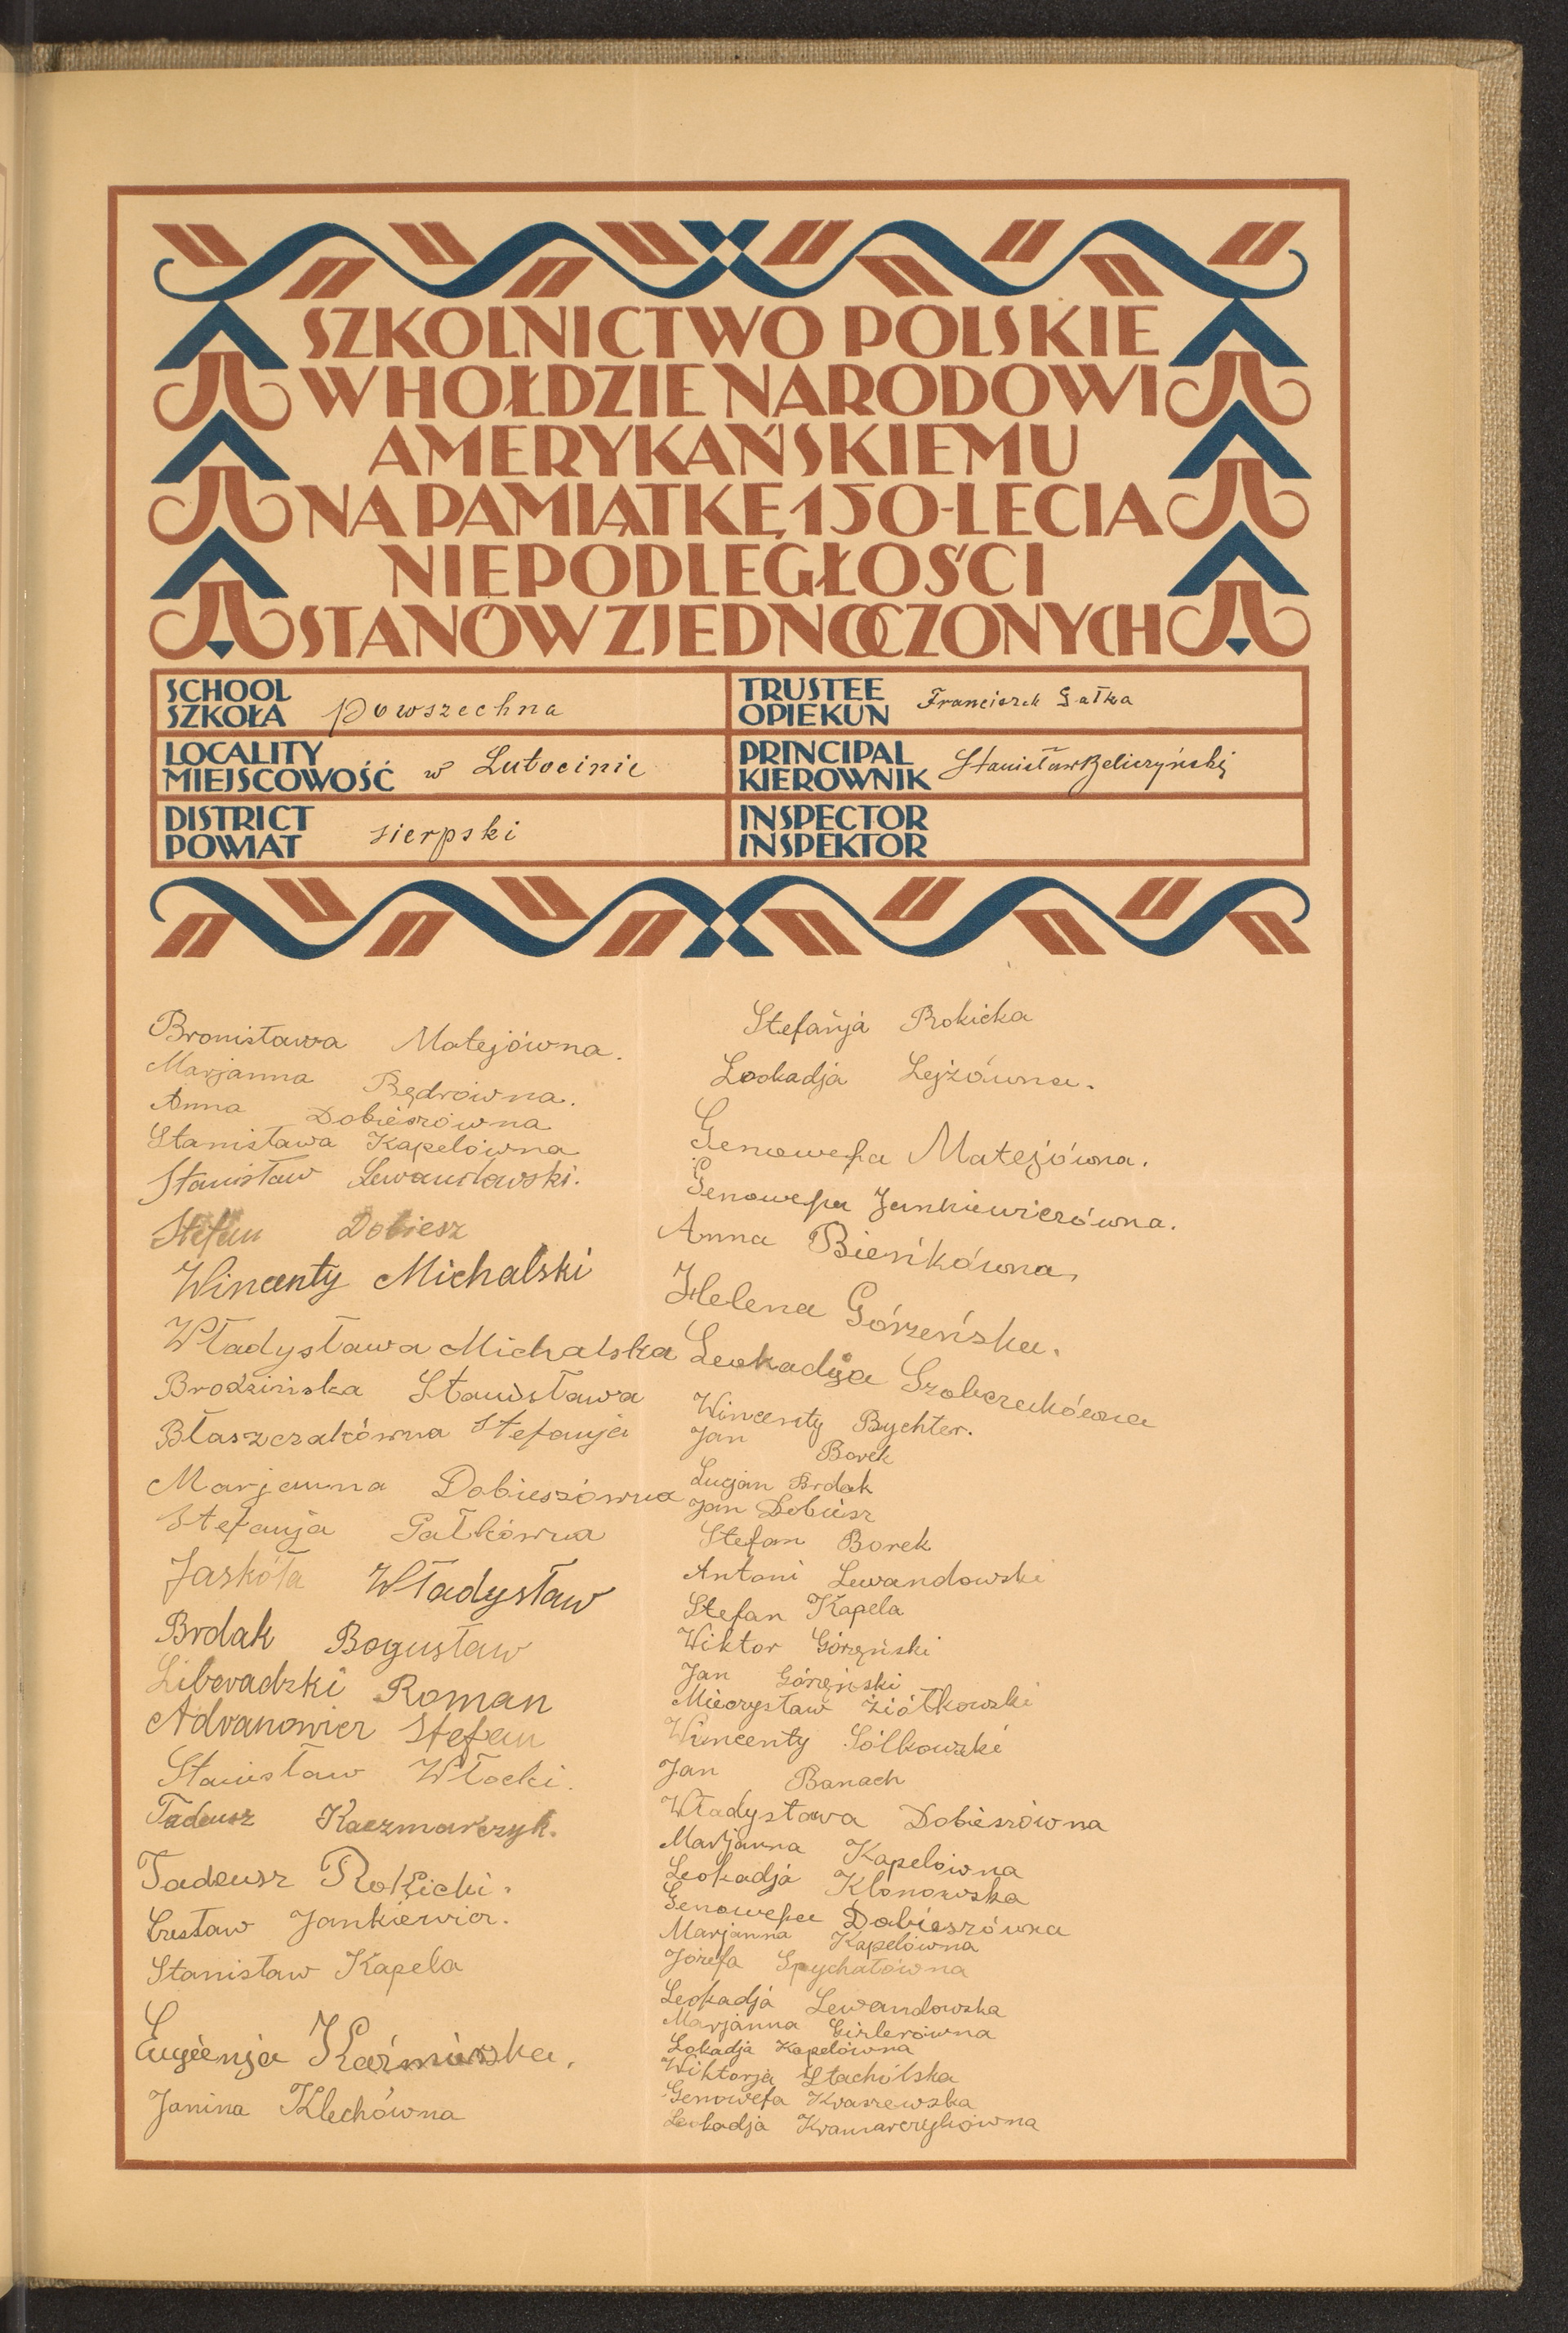 SZKOLNICTWO POLSKIE
W HOŁDZIE NARODOWI
AMERYKAŃSKIEMU
NA PAMIĄTKĘ 150-LECIA
NIEPODLEGŁOŚCI
STANÓW ZJEDNOCZONYCH
SCHOOL
SZKOŁA powszechna
TRUSTEE
OPIEKUN Franciszek Gałka
LOCALITY
MIEJSCOWOŚĆ w Lutocinie
PRINCIPAL
KIEROWNIK Stanisław Beliczyński
DISTRICT
POWIAT sierpski
INSPECTOR
INSPEKTOR
Bronisława Matejówna.
Marjanna Będrówna.
Anna Dobieszówna
Stanisława Kapelówna
Stanisław Lewandowski.
Stefan Dobiesz
Wincenty Michalski
Władysława Michalska
Brodzińska Stanisława
Błaszczakówna Stefanja
Marjanna Dobieszówna
Stefanja Gałkówna
Jaskóła Władysław
Brdak Bogusław
Liberadzki Roman
Adranowicz Stefan
Stanisław Włocki.
Tadeusz Kaczmarczyk.
Tadeusz Rokicki.
Czesław Jankiewicz.
Stanisław Kapela
Eugienja Kaźmirska.
Janina Klechówna
Stefanja Rokicka
Leokadja Lejzówna.
Genowefa Matejówna.
Genowefa Jankiewiczówna.
Anna Bieńkówna,
Helena Górzeńska.
Leokadja
Wincenty Rychter.
Jan Borek
Lucjan Brdak
Jan Dobiesz
Stefan Borek
Antoni Lewandowski
Stefan Kapela
Wiktor Górzyński
Jan Górzyński
Mieczysław Ziółkowski
Wincenty Sólkowski
Jan Banach
Władysława Dobieszówna
Marjanna Kapelówna
Leokadja Klonowska
Genowefa Dobieszówna
Marjanna Kapelówna
Józefa Spychałówna
Leokadja Lewandowska
Marjanna Girlerówna
Lokadja Kapelówna
Wiktorja Stachólska
Genowefa Kraszewska
Leokadja Kramarczykówna